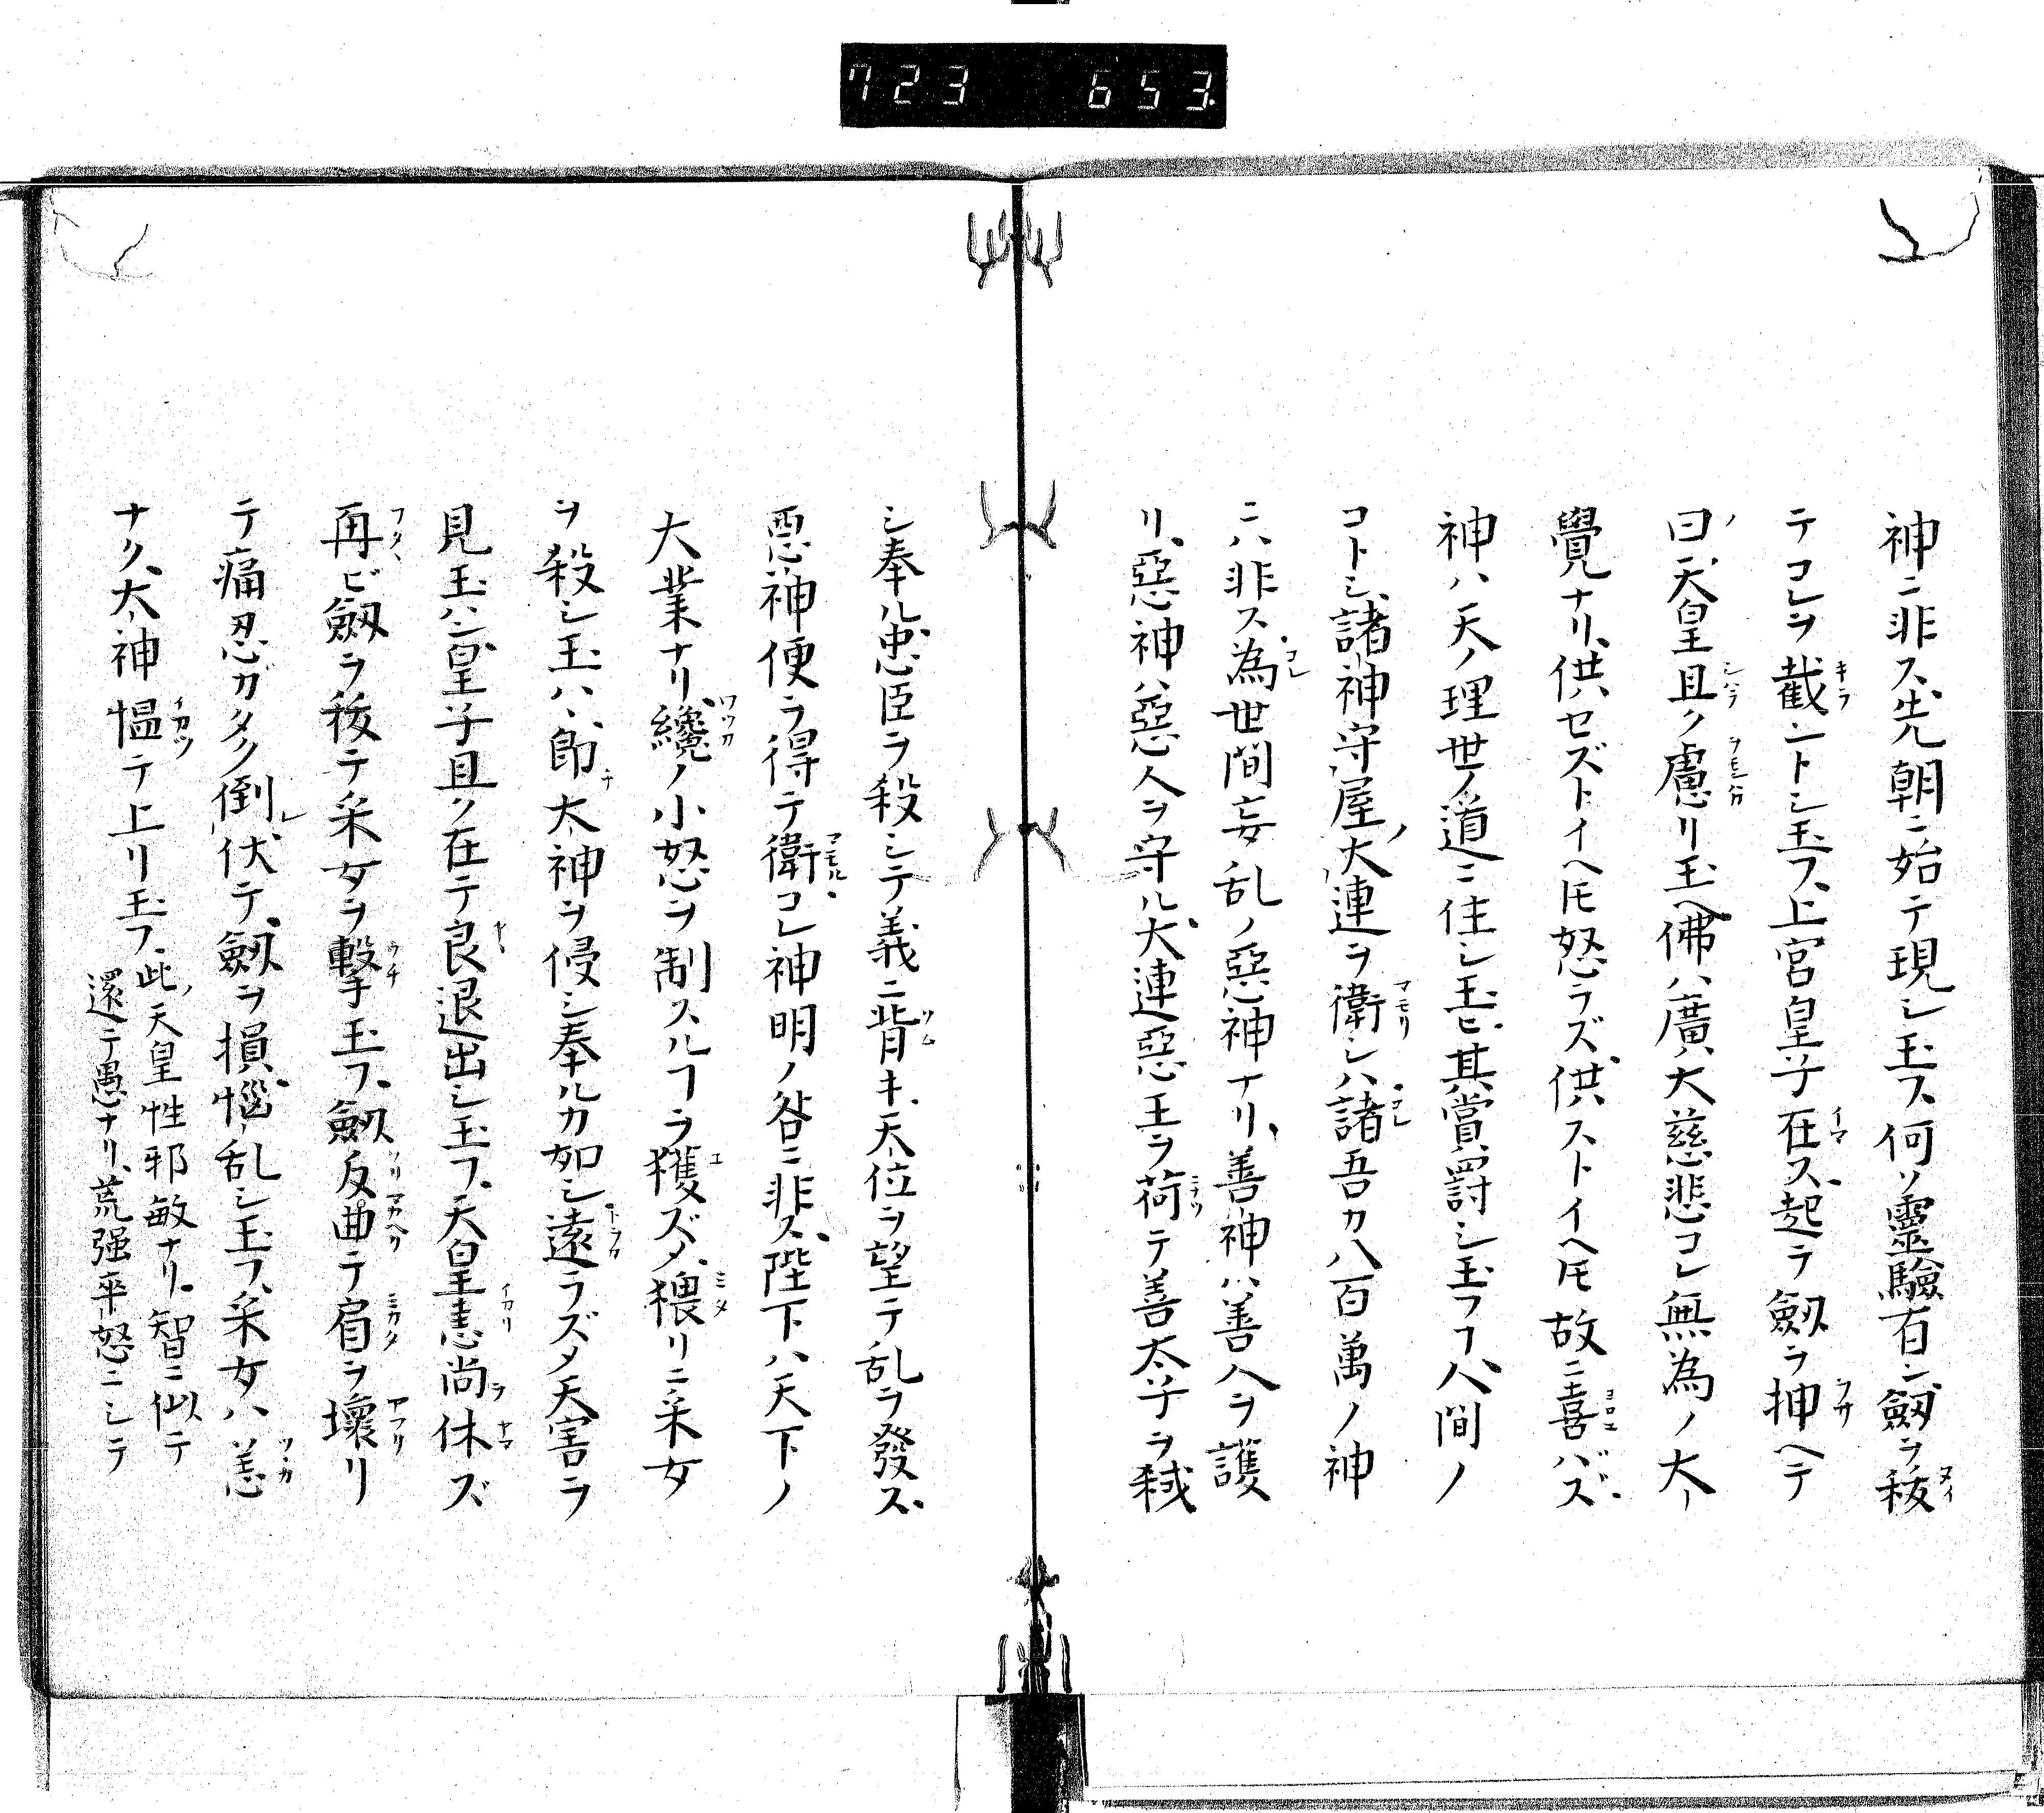 723 653
神ニ非ス先朝ニ始テ現シ玉ス何ソ靈驗有ン劔ヲ拔
テコレヲ截ントシ玉フ上宮皇子在ス起テ劔ヲ押ヘテ
曰天皇且ク慮リ玉ヘ佛ハ廣大慈悲コレ無為ノ大
覺ナリ供セズトイヘ𪜈怒ラズ供ストイヘ𪜈故ニ喜バズ
神ハ天ノ理世ノ道ニ住シ玉ヒ其賞罸シ玉フヿ人間ノ
コトシ諸神守屋大連ヲ衛シハ諸吾カ八百萬ノ神
ニハ非ス為世間妄乱ノ惡神ナリ善神ハ善人ヲ護
リ惡神ハ惡人ヲ守ル大連惡王ヲ荷テ善太子ヲ弑
シ奉ル忠臣ヲ殺シテ義ニ背キ天位ヲ望テ乱ヲ發ス
惡神便ヲ得テ衛コレ神明ノ咎ニ非ス陛下ハ天下ノ
大業ナリ纔ノ小怒ヲ制スルヿヲ獲ズメ猥リニ采女
ヲ殺シ玉ハ丶即大神ヲ侵シ奉ルカ如シ遠ラズメ天害ヲ
見玉ハン皇子且ク在テ良退出シ玉フ天皇恚尚休ズ
再ビ劔ヲ拔テ采女ヲ擊玉フ劔反曲テ肩ヲ壞リ
テ痛忍ガタク倒伏テ劔ヲ損惱乱シ玉フ采女ハ恙
ナク大神慍テ上リ玉フ此天皇性邪敏ナリ智ニ似テ
還テ愚ナリ荒强卒怒ニシテ